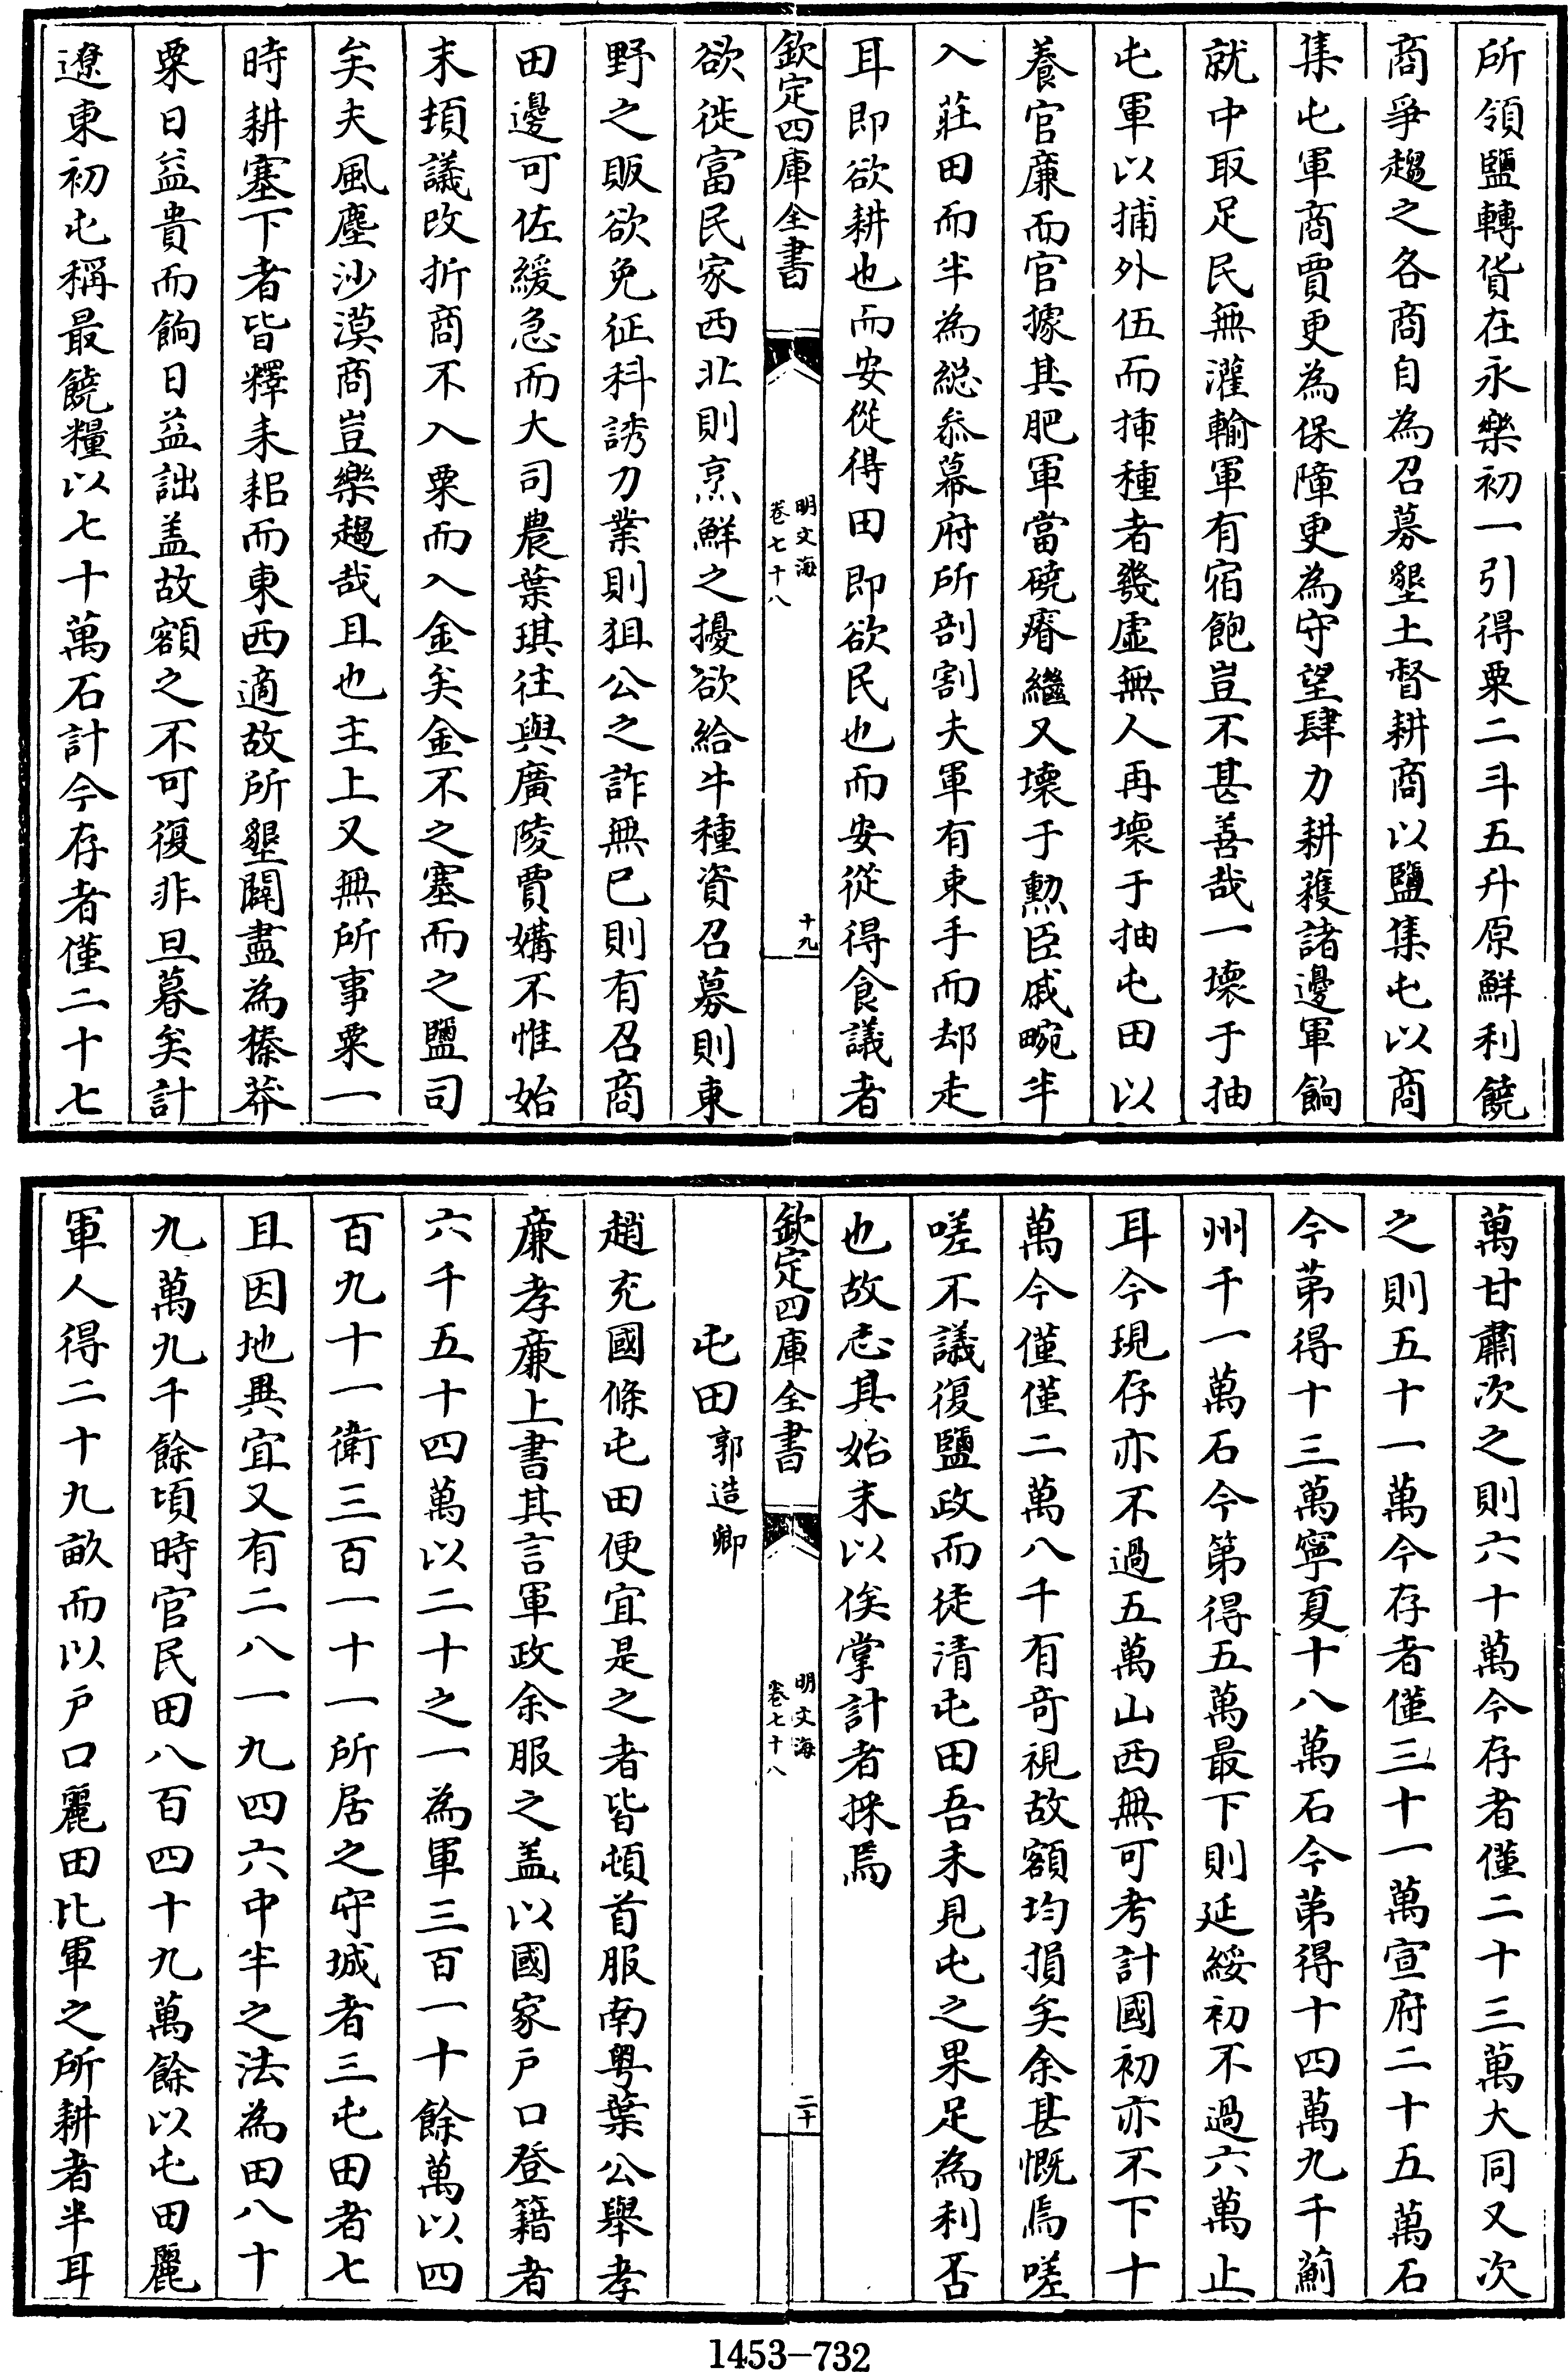 所領鹽轉貨在永樂初一引得粟二斗五升原鮮利饒
商爭趨之各商自為召募墾土督耕商以鹽集屯以商
集屯軍商賈更為保障更為守望肆力耕穫諸邊軍餉
就中取足民無灌輸軍有宿飽豈不甚善哉一壞于抽
屯軍以捕外伍而揷種者幾虛無人再壞于抽屯田以
養官廉而官據其肥軍當磽瘠繼又壞于勲臣戚畹半
入莊田而半為総叅幕府所剖割夫軍有束手而却走
耳即欲耕也而安從得田即欲民也而安從得食議者
欽定四庫全書
明文海
卷七十八
十九
欲徙富民家西北則烹鮮之擾欲給牛種資召募則東
野之販欲免征科誘力業則狙公之詐無已則有召商
田邊可佐緩急而大司農葉琪往與廣陵賈媾不惟始
末頊議改折商不入粟而入金矣金不之塞而之鹽司
矣夫風塵沙漠商豈樂趨哉且也主上又無所事粟一
時耕塞下者皆釋耒耜而東西適故所墾闢盡為榛莽
粟日益貴而餉日益詘盖故額之不可復非旦暮矣計
遼東初屯稱最饒糧以七十萬石計今存者僅二十七
萬甘肅次之則六十萬今存者僅二十三萬大同又次
之則五十一萬今存者僅三十一萬宣府二十五萬石
今第得十三萬寧夏十八萬石今第得十四萬九千薊
州千一萬石今第得五萬最下則延綏初不過六萬止
耳今現存亦不過五萬山西無可考計國初亦不下十
萬今僅僅二萬八千有奇視故額均損矣余甚慨焉嗟
嗟不議復鹽政而徒清屯田吾未見屯之果足為利否
也故志其始末以俟掌計者採焉
欽定四庫全書
明文海
卷七十八
二十
屯田郭造卿
趙充國條屯田便宜是之者皆頓首服南粤葉公舉孝
廉孝廉上書其言軍政余服之盖以國家戶口登籍者
六千五十四萬以二十之一為軍三百一十餘萬以四
百九十一衛三百一十一所居之守城者三屯田者七
且因地異宜又有二八一九四六中半之法為田八十
九萬九千餘頃時官民田八百四十九萬餘以屯田麗
軍人得二十九畝而以戶口麗田比軍之所耕者半耳
1453-732